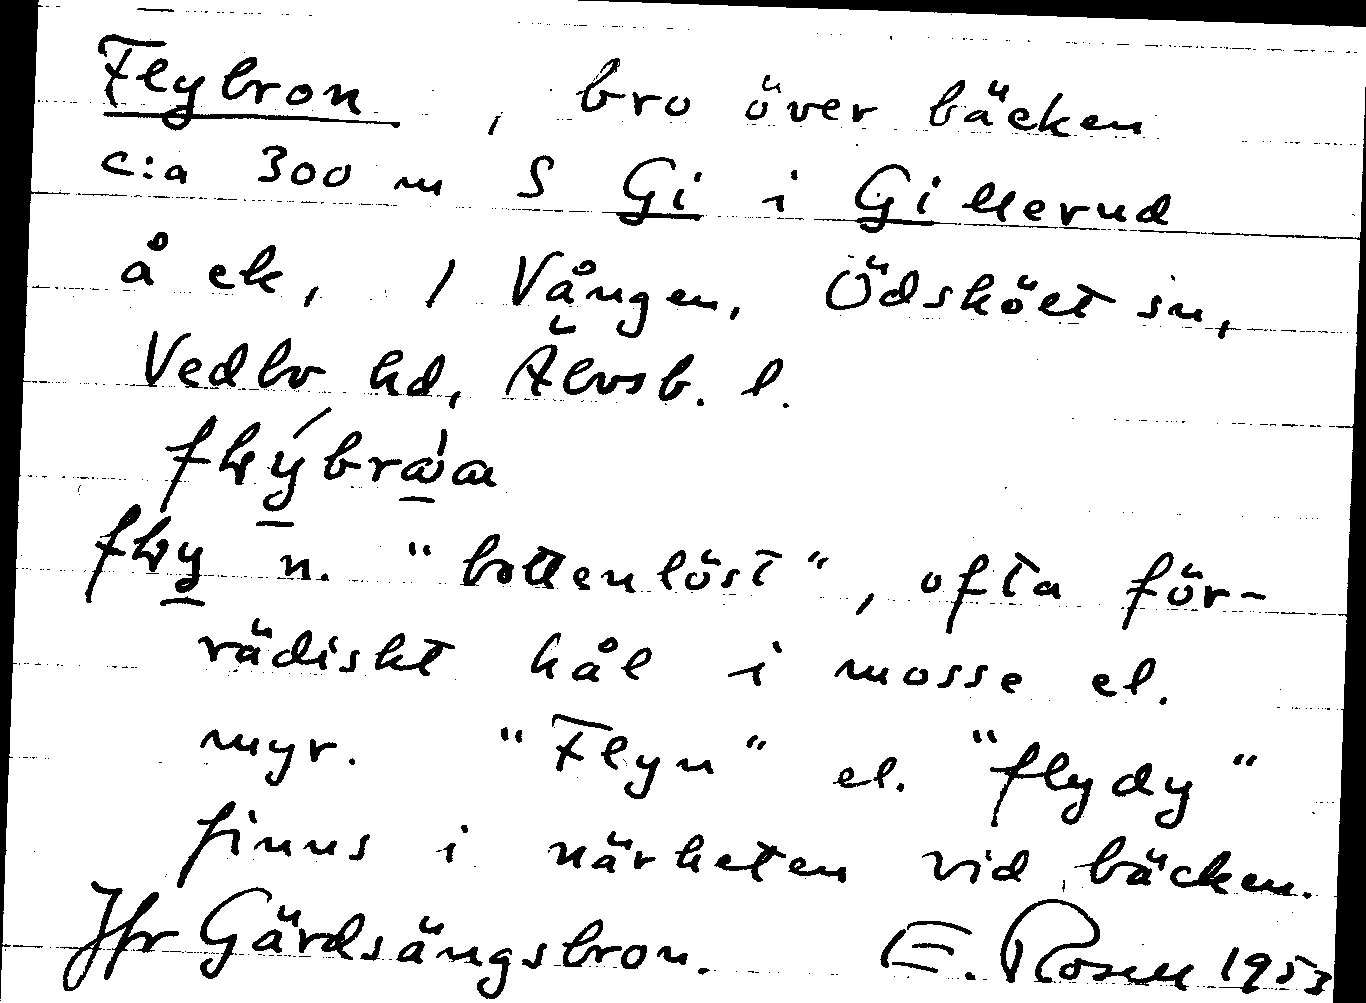 Flybron, bro över bäcken
c:a 300 m S Gi i Gillerud
å ek, / Vången, Ödsköet sn,
Vedbo hd, Älvsb. l.
n. "bottenlöst", ofta för-
rädiskt hål i mosse el.
myr. "Flyn" el. "flydy"
finns i närheten vid bäcken.
Jfr Gärdsängsbron. E. Rosell 1953